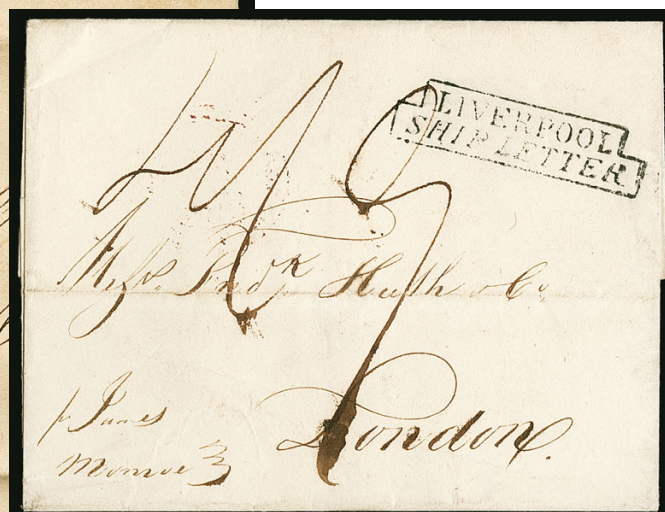 LIVERPOOL
SHIP LETTER
Messrs. Fredk Huth & Co
London.
pr James
Monroe